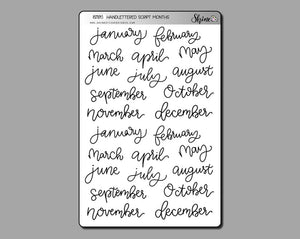 HANDLETTERED SCRIPT MONTHS
Shine
january february
march april may
june july august
september October
november december
january february
march april may
june july august
september October
november december